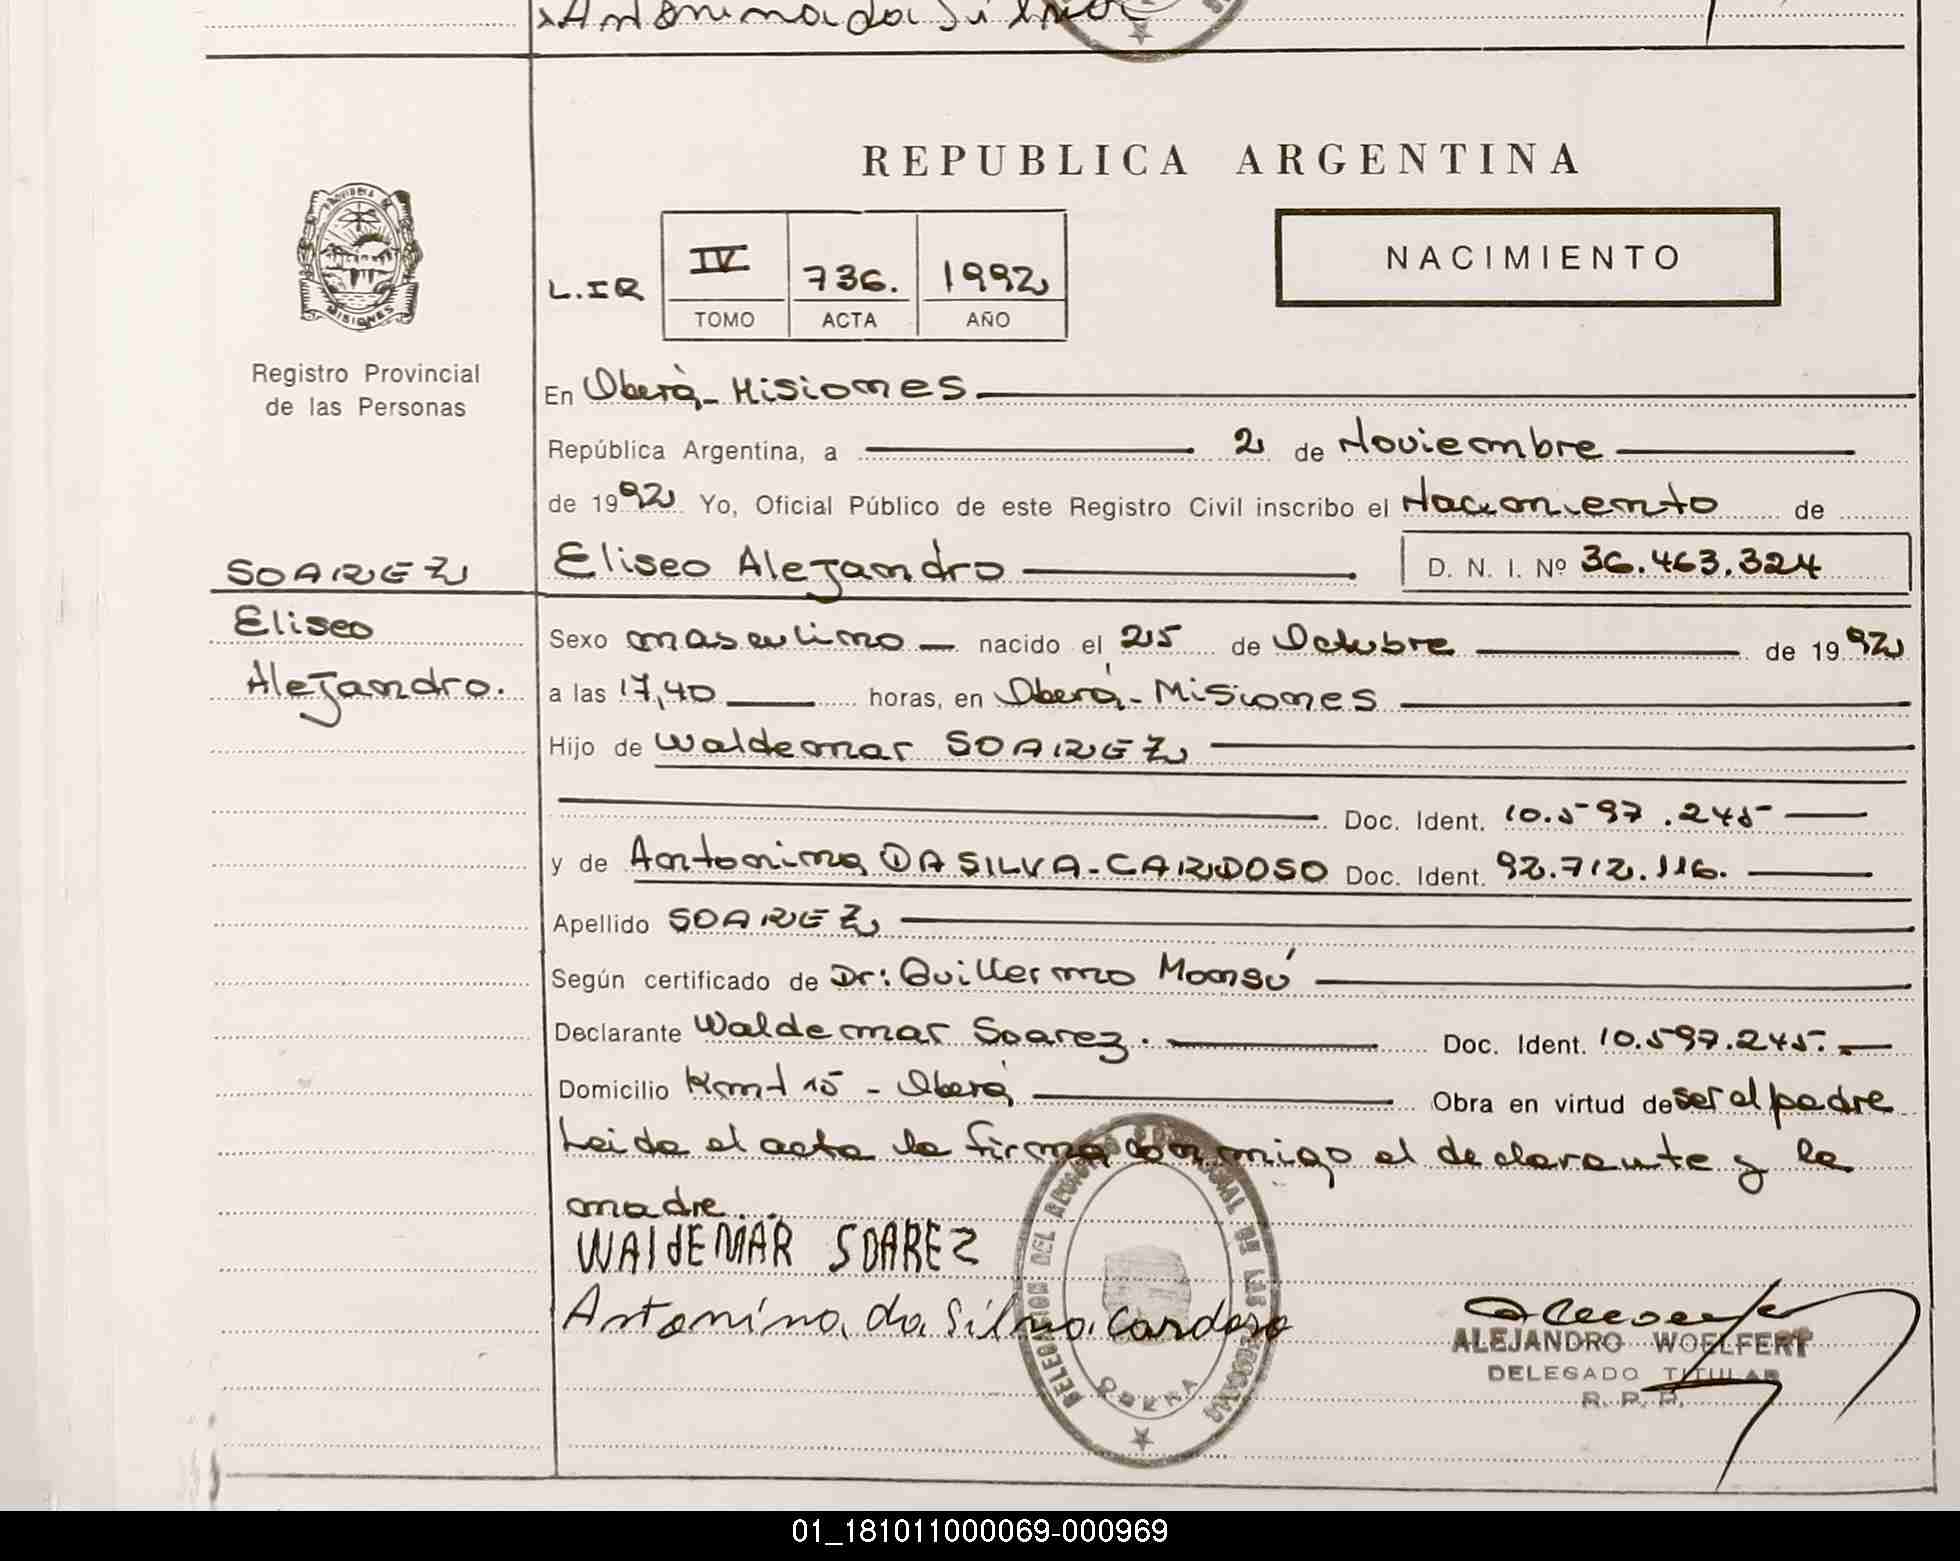 Antonina da Silva
REPUBLICA ARGENTINA
PROVINCIA DE
MISIONES
NACIMIENTO
L.IR IV 736. 1992
TOMO ACTA AÑO
Registro Provincial
de las Personas
En Oberá - Misiones
República Argentina, a 2 de Noviembre
de 1992 Yo, Oficial Público de este Registro Civil inscribo el Nacimiento de
SOAREZ Eliseo Alejandro D. N. I. Nº 36.463.324
Eliseo
Alejandro.
Sexo masculino nacido el 25 de Octubre de 1992
a las 17,40 horas, en Oberá - Misiones
Hijo de Waldemar SOAREZ
Doc. Ident. 10.597.245
y de Antonina DA SILVA - CARDOSO Doc. Ident. 92.712.116.
Apellido SOAREZ
Según certificado de Dr: Guillermo Monsú
Declarante Waldemar Soarez. Doc. Ident. 10.597.245.
Domicilio Kmt 15 - Oberá Obra en virtud de ser el padre
Leida el acta la firma conmigo el declarante y la
madre..
WAldEMAR SOAREZ
Antonina da Silva Cardoso
DELEGACION DEL REGISTRO PROVINCIAL DE LAS PERSONAS
OBERA
ALEJANDRO WOELFERT
DELEGADO TITULAR
R. P. P.
01_181011000069-000969